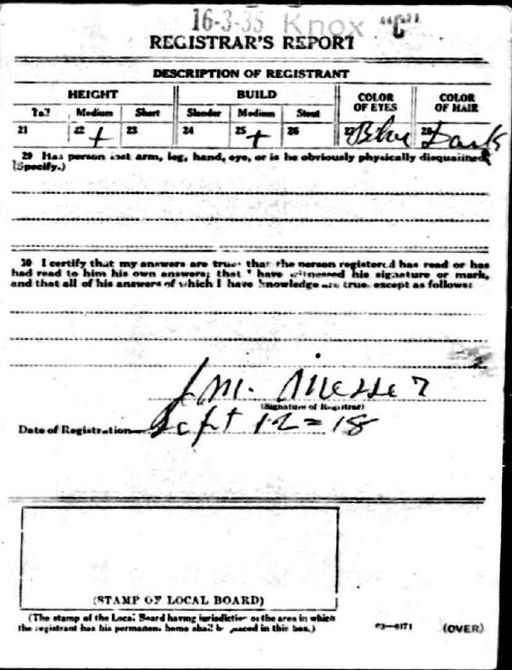 16-3-35 Knox "C"
REGISTRAR'S REPORT
DESCRIPTION OF REGISTRANT
HEIGHT BUILD COLOR OF EYES COLOR OF HAIR
Tall Medium Short Slender Medium Stout
21 22 + 23 24 25 + 26 27 Blue 28 Dark
29 Has person lost arm, leg, hand, eye, or is he obviously physically disqualified?
(Specify.)
30 I certify that my answers are true; that the person registered has read or has
had read to him his own answers; that I have witnessed his signature or mark,
and that all of his answers of which I have knowledge are true, except as follows:
J.M. Messer
(Signature of Registrar)
Date of Registration Sept 12=18
(STAMP OF LOCAL BOARD)
(The stamp of the Local Board having jurisdiction of the area in which
the registrant has his permanent home shall be placed in this box.)
03-6171 (OVER)